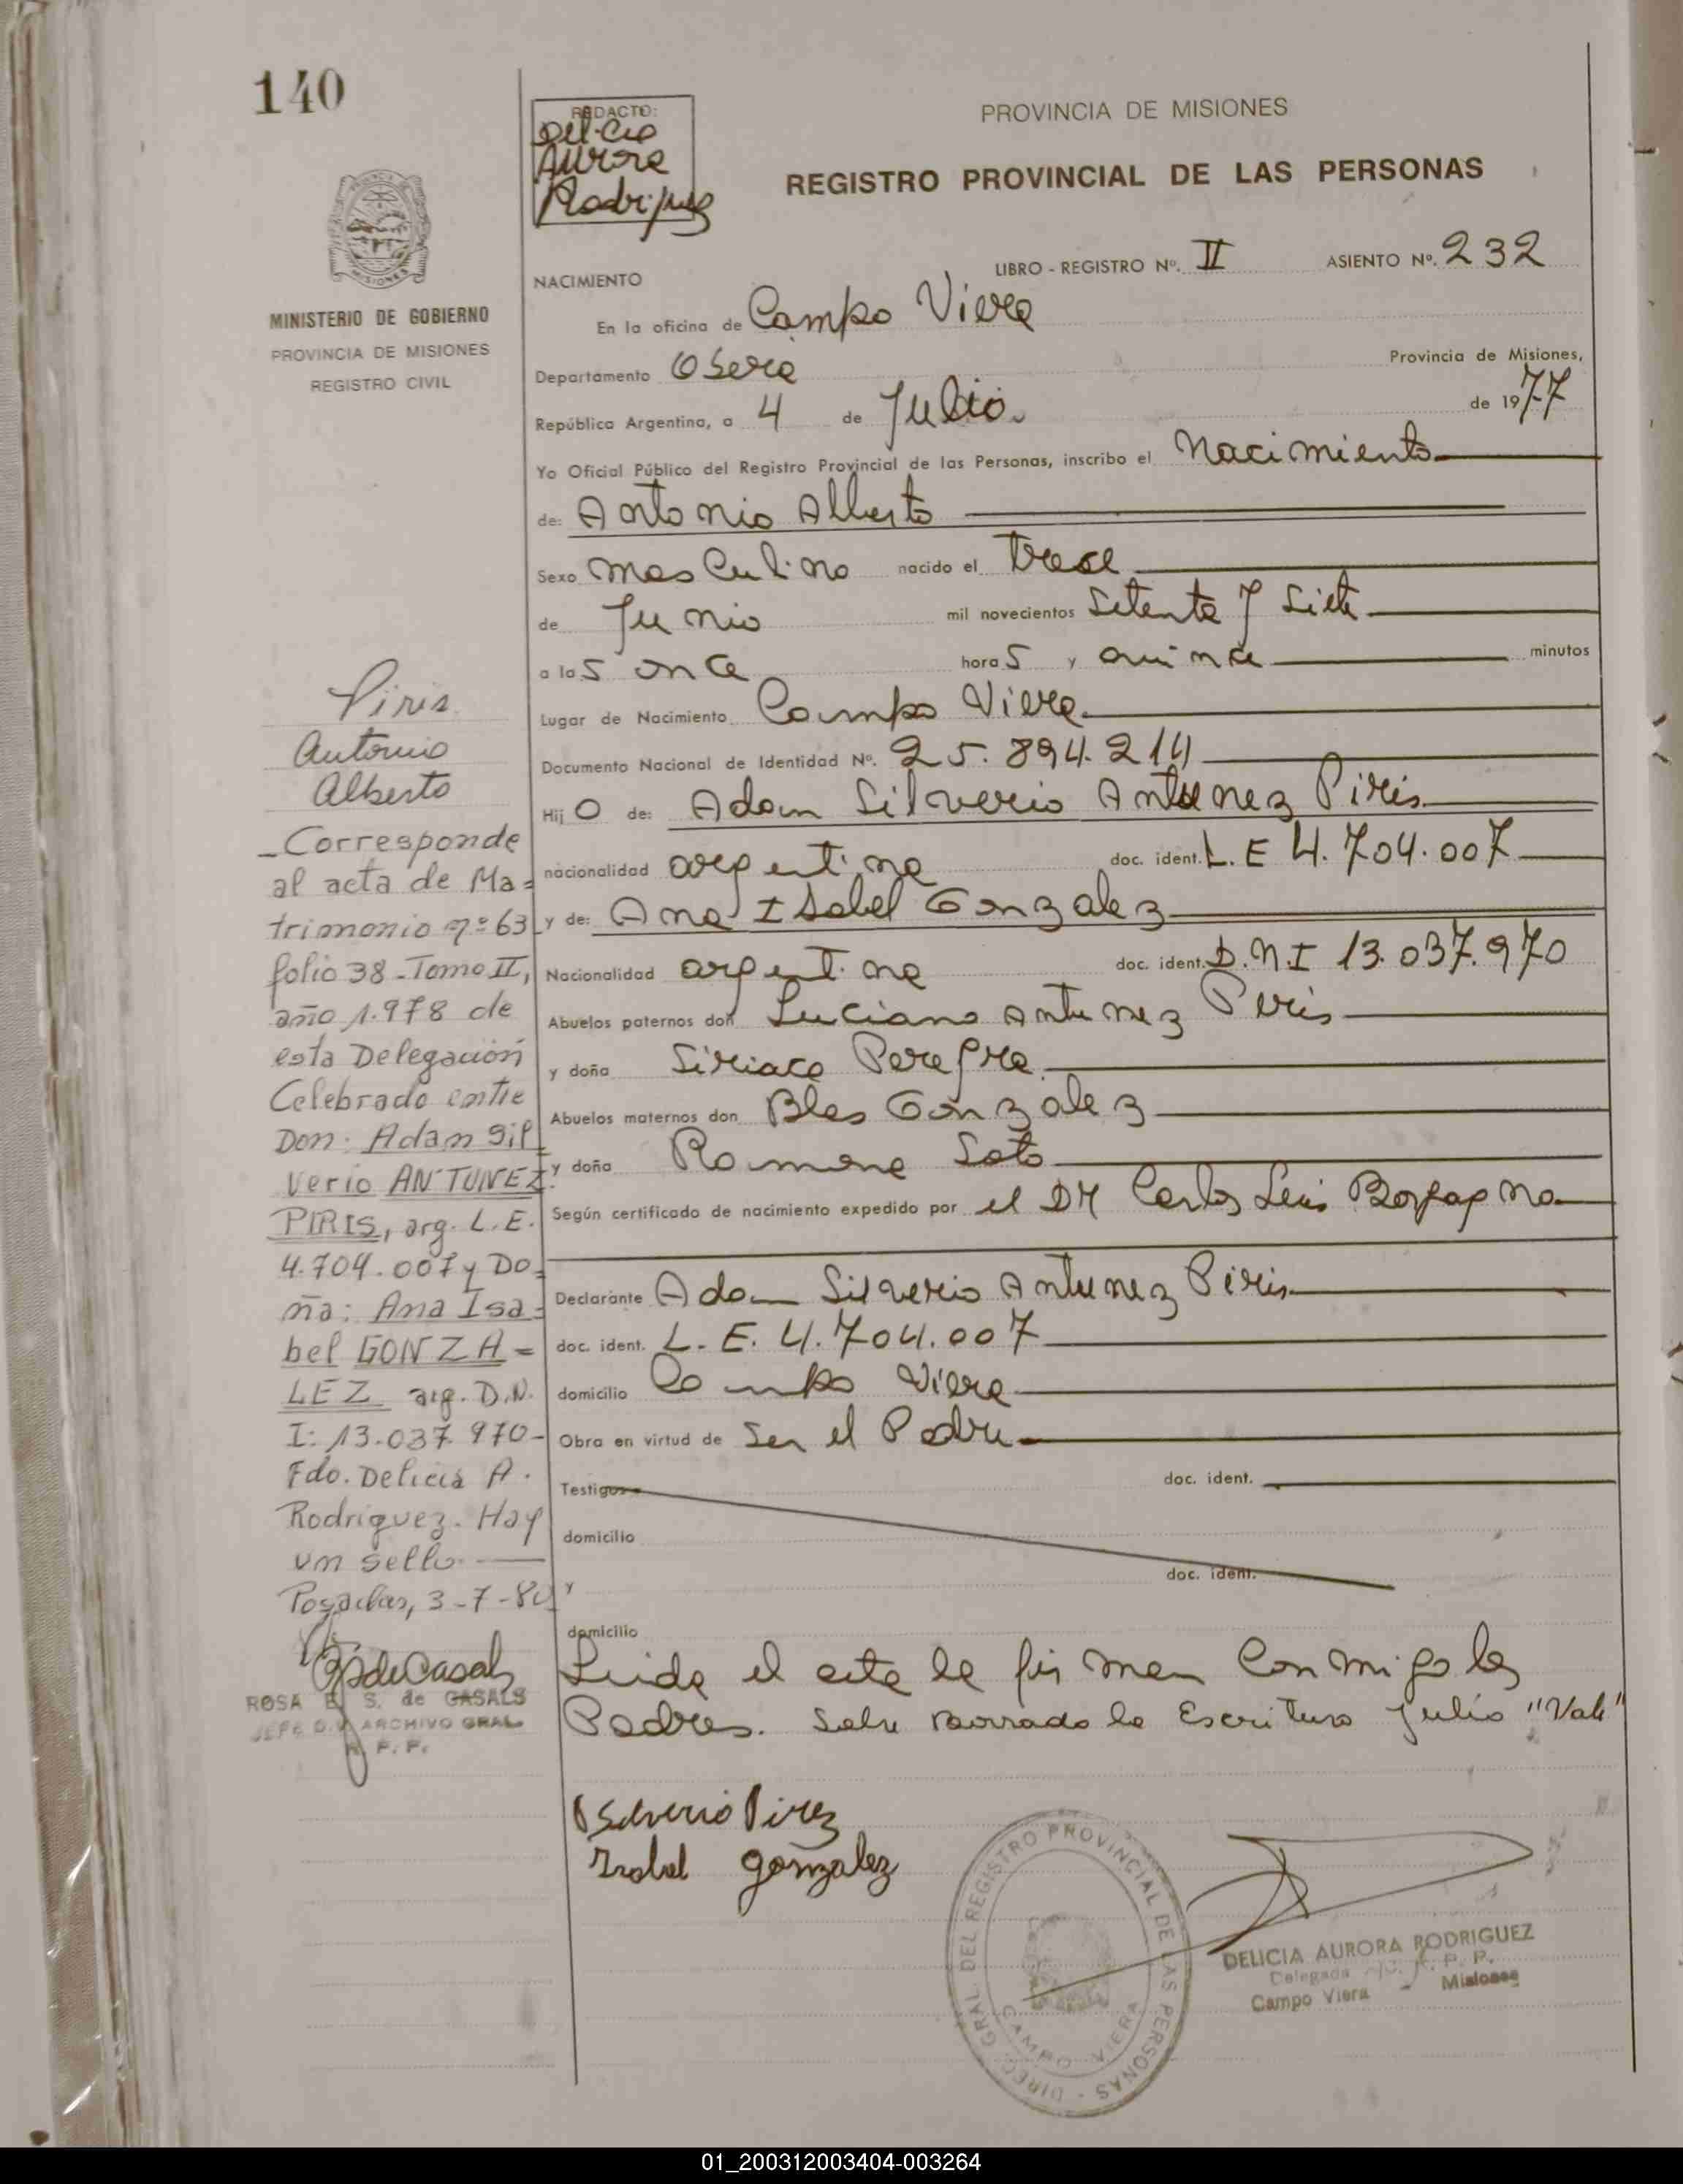 140
REDACTO:
Delicia
Aurora
Rodriguez
PROVINCIA DE MISIONES
REGISTRO PROVINCIAL DE LAS PERSONAS
MINISTERIO DE GOBIERNO
PROVINCIA DE MISIONES
REGISTRO CIVIL
LIBRO - REGISTRO Nº. II ASIENTO Nº. 232
NACIMIENTO
En la oficina de Campo Viera
Departamento Obera Provincia de Misiones,
República Argentina, a 4 de Julio de 1977
Yo Oficial Público del Registro Provincial de las Personas, inscribo el Nacimiento
de: Antonio Alberto
Sexo Masculino nacido el trece
de Junio mil novecientos Setenta y Siete
a las once horas y quince minutos
Lugar de Nacimiento Campo Viera
Documento Nacional de Identidad Nº. 25.894.214
Hijo de: Adam Silverio Antunez Piris
nacionalidad argentina doc. ident. L.E 4.704.007
y de: Ana Isabel Gonzalez
Nacionalidad argentina doc. ident. D.N.I 13.037.970
Abuelos paternos don Luciano Antunez Piris
y doña Siriaca Pereyra
Abuelos maternos don Blas Gonzalez
y doña Ramona Soto
Según certificado de nacimiento expedido por el DR Carlos Luis
Declarante Adam Silverio Antunez Piris
doc. ident. L.E. 4.704.007
domicilio Campo Viera
Obra en virtud de Ser el Padre
Testigos doc. ident.
domicilio
y doc. ident.
domicilio
Leida el acta la firman conmigo los
Padres. Sobre borrado la Escritura Julio "Vale"
Silverio Pirez
Isabel gonzalez
Piris
Antonio
Alberto
_Corresponde
al acta de Ma=
trimonio nº 63
folio 38-Tomo II,
año 1.978 de
esta Delegación
Celebrado entre
Don: Adam Sil
verio ANTUNEZ
PIRIS, arg. L.E.
4.704.007 y Do=
ña: Ana Isa=
bel GONZA=
LEZ arg. D.N.
I: 13.037.970-
Fdo. Delicia A.
Rodriguez. Hay
un sello.
Posadas, 3-7-80
ROSA E. S. de CASALS
JEFE DIV. ARCHIVO GRAL.
R. P. P.
DIREC. GRAL. DEL REGISTRO PROVINCIAL DE LAS PERSONAS -
CAMPO VIERA
DELICIA AURORA RODRIGUEZ
Delegada R. P. P.
Campo Viera - Misiones
01_200312003404-003264